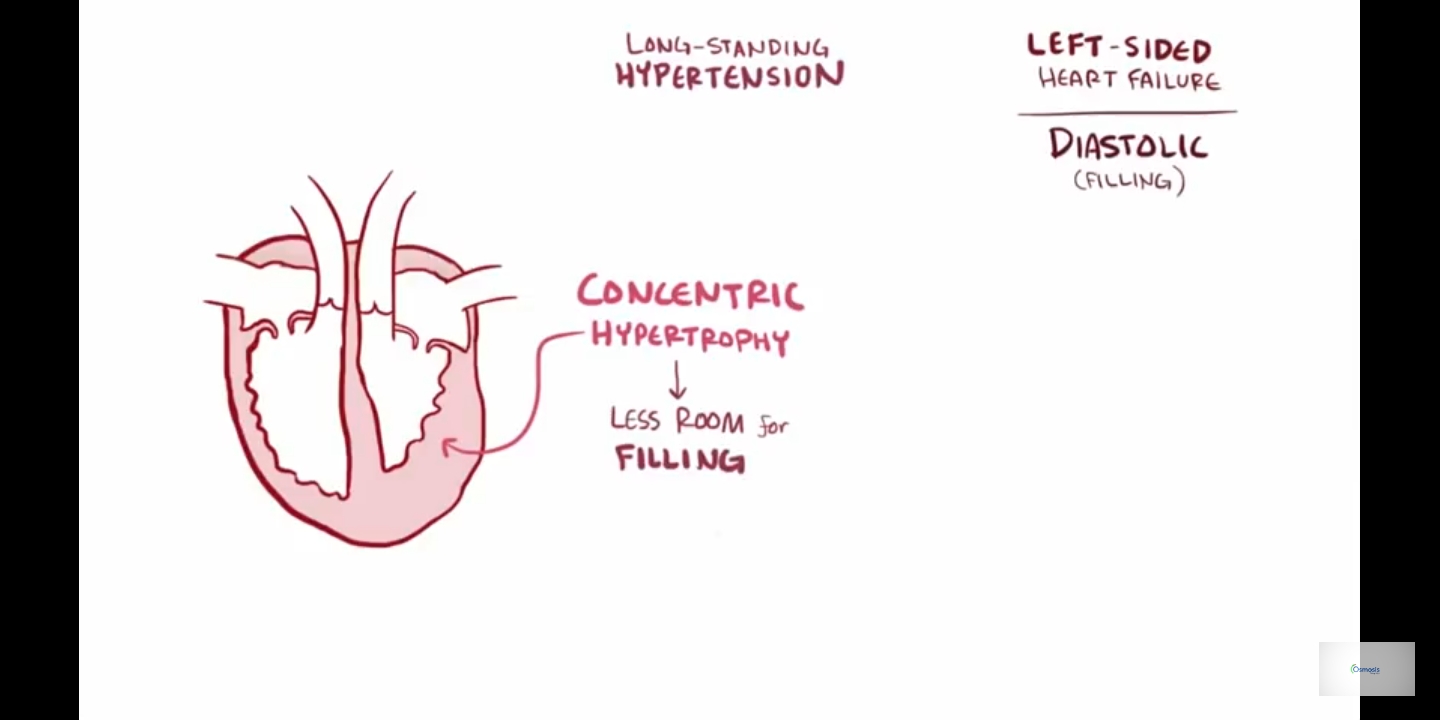 LONG-STANDING
HYPERTENSION
LEFT-SIDED
HEART FAILURE
DIASTOLIC
(FILLING)
CONCENTRIC
HYPERTROPHY
LESS ROOM for
FILLING
Osmosis